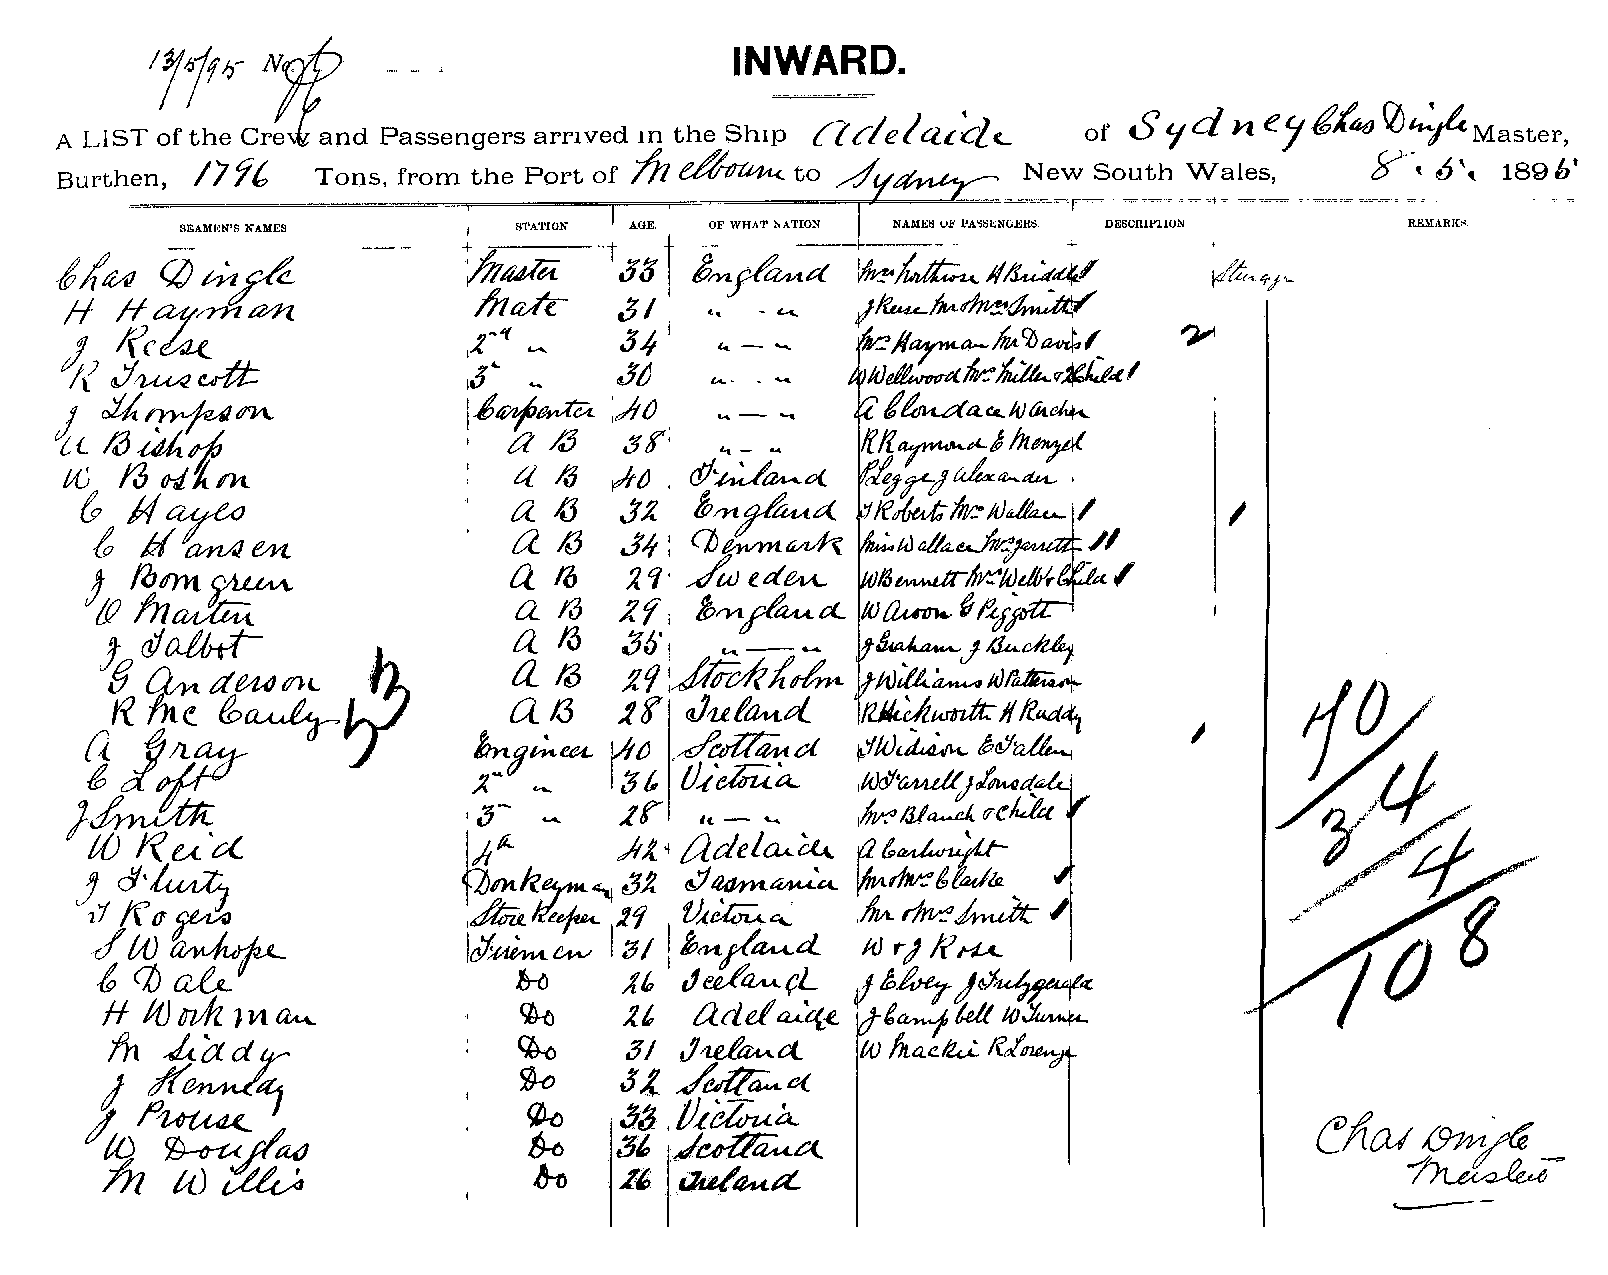 13/5/95 No
INWARD.
A LIST of the Crew and Passengers arrived in the Ship Adelaide of Sydney Chas Dingle Master,
Burthen, 1796 Tons, from the Port of Melbourne to Sydney New South Wales, 8.5. 1895
SEAMEN'S NAMES STATION AGE. OF WHAT NATION NAMES OF PASSENGERS. DESCRIPTION REMARKS.
Chas Dingle Master 33 England Mrs H Briddle Steerage
H Hayman Mate 31 " " J Reese Mr & Mrs Smith
J Reese 2nd " 34 " — " Mrs Hayman Mr Davis 2
R Truscott 3 " 30 " " W Wellwood Mrs Miller & Child
J Thompson Carpenter 40 " — " A Clondace W Archer
A Bishop A B 38 " - " R Raymond E Menzel
W Boshon A B 40 Finland P Legge J Alexander
C Hayes A B 32 England T Roberts Mrs Wallace
C Hansen A B 34 Denmark Miss Wallace Mrs Jarrett
J Bomgreen A B 29 Sweden W Bennett Mrs Webb & Child
O Marten A B 29 England W Aroon G Piggott
J Talbot A B 35 " — " J Graham J Buckley
G Anderson A B 29 Stockholm J Williams W Patterson
R Mc Cauly A B 28 Ireland R Hickworth H Ruddy
A Gray Engineer 40 Scotland T Widison E Fallen
C Loft 2nd " 36 Victoria W Farrell J Lonsdale
J Smith 3 " 28 " — " Mrs Blanch & Child
W Reid 4th 42 Adelaide A Cartwright
J Flurty Donkeyman 32 Tasmania Mr & Mrs Clarke
T Rogers Store Keeper 29 Victoria Mr & Mrs Smith
S Wanhope Firemen 31 England W & J Rose
C Dale Do 26 Iceland J Elvey J Fritzgerald
H Workman Do 26 Adelaide J Campbell W Turner
M Siddy Do 31 Ireland W Mackie R Lorenz
J Kennedy Do 32 Scotland
J Prouse Do 33 Victoria
W Douglas Do 36 Scotland
M Willis Do 26 Ireland
70
34
4
108
Chas Dingle
Master